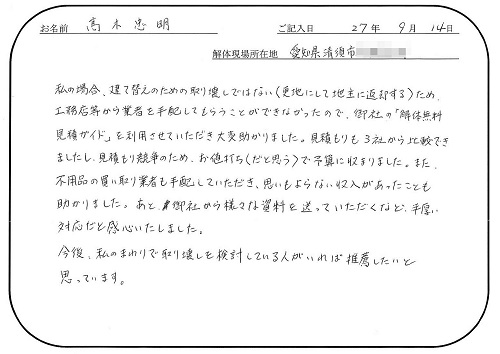 お名前 高木忠明 ご記入日 27年 9月 14日
解体現場所在地 愛知県清須市
私の場合、建て替えのための取り壊しではない(更地にして地主に返却する)ため、
工務店等から業者を手配してもらうことができなかったので、御社の「解体無料
見積ガイド」を利用させていただき大変助かりました。見積もりも3社から比較でき
ましたし、見積もり競争のため、お値打ち(だと思う)で予算に収まりました。また、
不用品の買い取り業者も手配していただき、思いもよらない収入があったことも
助かりました。あと、御社から様々な資料を送っていただくなど、手厚い
対応だと感心いたしました。
今後、私のまわりで取り壊しを検討している人がいれば推薦したいと
思っています。